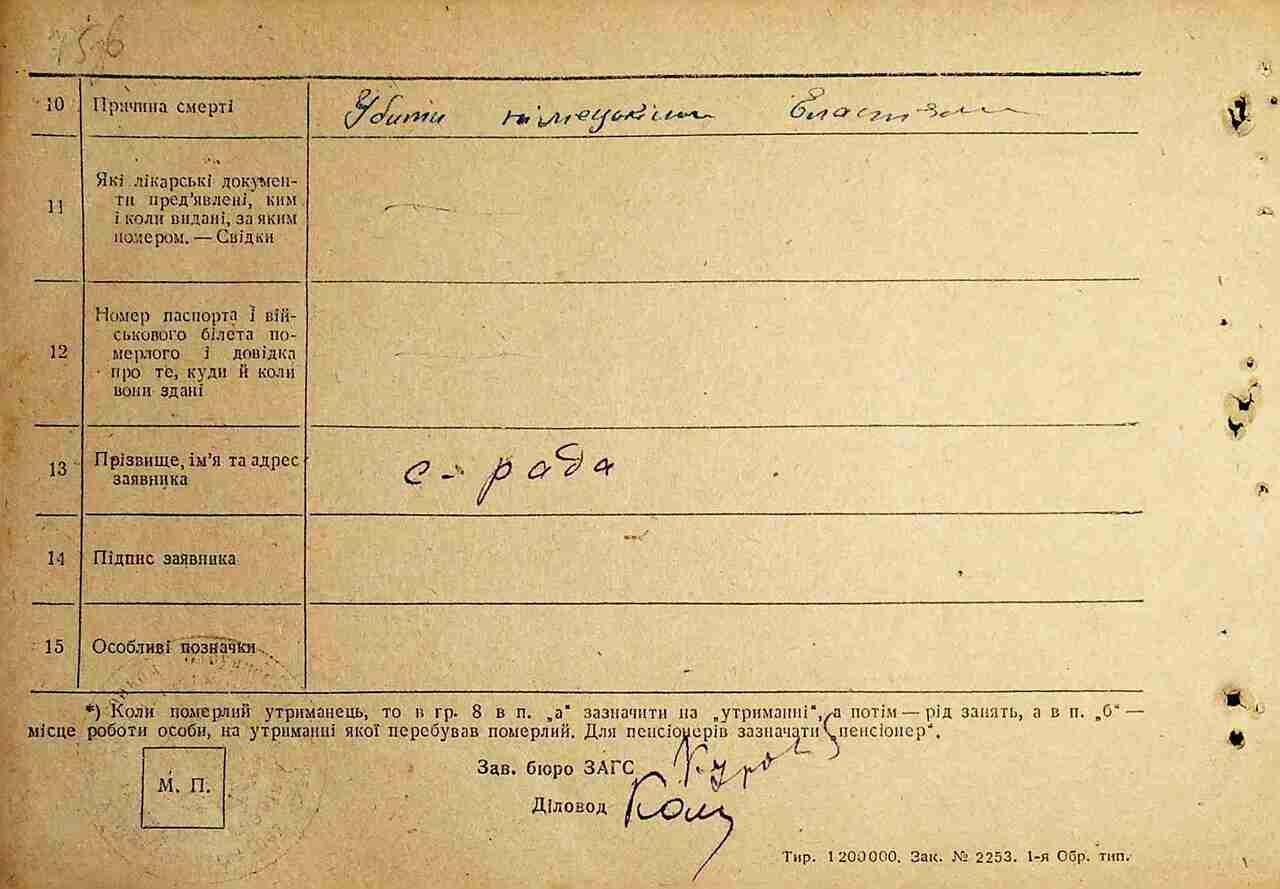 156
10 Причина смерті Убити німецькими властями
11 Які лікарські документи
ти пред’явлені, ким
і коли видані, за яким
номером. — Свідки
12 Номер паспорта і вій-
ськового білета по-
мерлого і довідка
про те, куди й коли
вони здані
13 Прізвище, ім’я та адрес с-рада
заявника
14 Підпис заявника
15 Особливі позначки
*) Коли померлий утриманець, то в гр. 8 в п. „а“ зазначити на „утриманні“, а потім — рід занять, а в п. „б“ —
місце роботи особи, на утриманні якої перебував померлий. Для пенсіонерів зазначати „пенсіонер“.
Зав. бюро ЗАГС
М. П.
Діловод
Тир. 1200000. Зак. № 2253. 1-я Обр. тип.